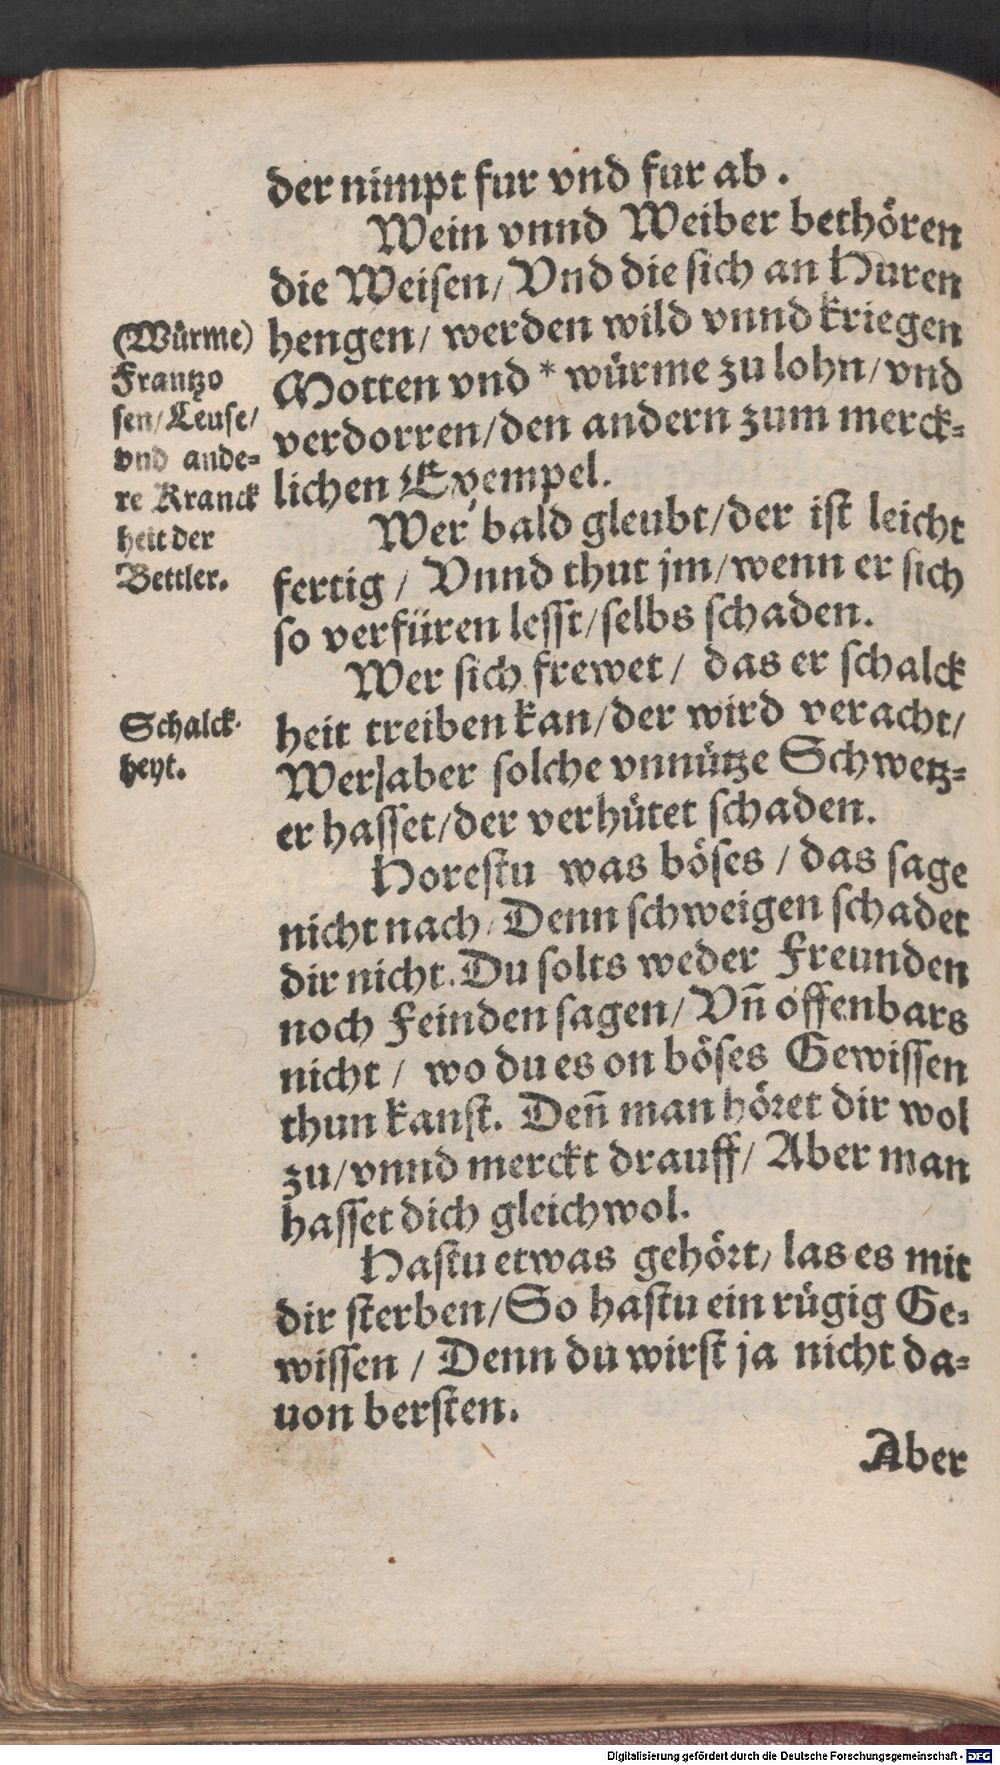 der nimpt fur vnd fur ab.
Wein vnnd Weiber bethören
die Weisen/ Vnd die sich an Huren
hengen/ werden wild vnnd kriegen
Motten vnd * würme zu lohn/ vnd
verdorren/ den andern zum merck-
lichen Exempel.
Wer bald gleubt/ der ist leicht
fertig / Vnnd thut jm/ wenn er sich
so verfüren lesst/ selbs schaden.
Wer sich frewet / das er schalck
heit treiben kan/ der wird veracht/
Wer aber solche vnnütze Schwetz-
er hasset/ der verhütet schaden.
Horestu was böses / das sage
nicht nach/ Denn schweigen schadet
dir nicht. Du solts weder Freunden
noch Feinden sagen/ Vn̄ offenbars
nicht / wo du es on böses Gewissen
thun kanst. Den̄ man höret dir wol
zu/ vnnd merckt drauff/ Aber man
hasset dich gleichwol.
Hastu etwas gehört/ las es mit
dir sterben/ So hastu ein rügig Ge-
wissen / Denn du wirst ja nicht da-
uon bersten.
Aber
(Würme)
Frantzo
sen/ Leuse/
vnd ande-
re Kranck
heit der
Bettler.
Schalck-
heyt.
Digitalisierung gefördert durch die Deutsche Forschungsgemeinschaft - DFG